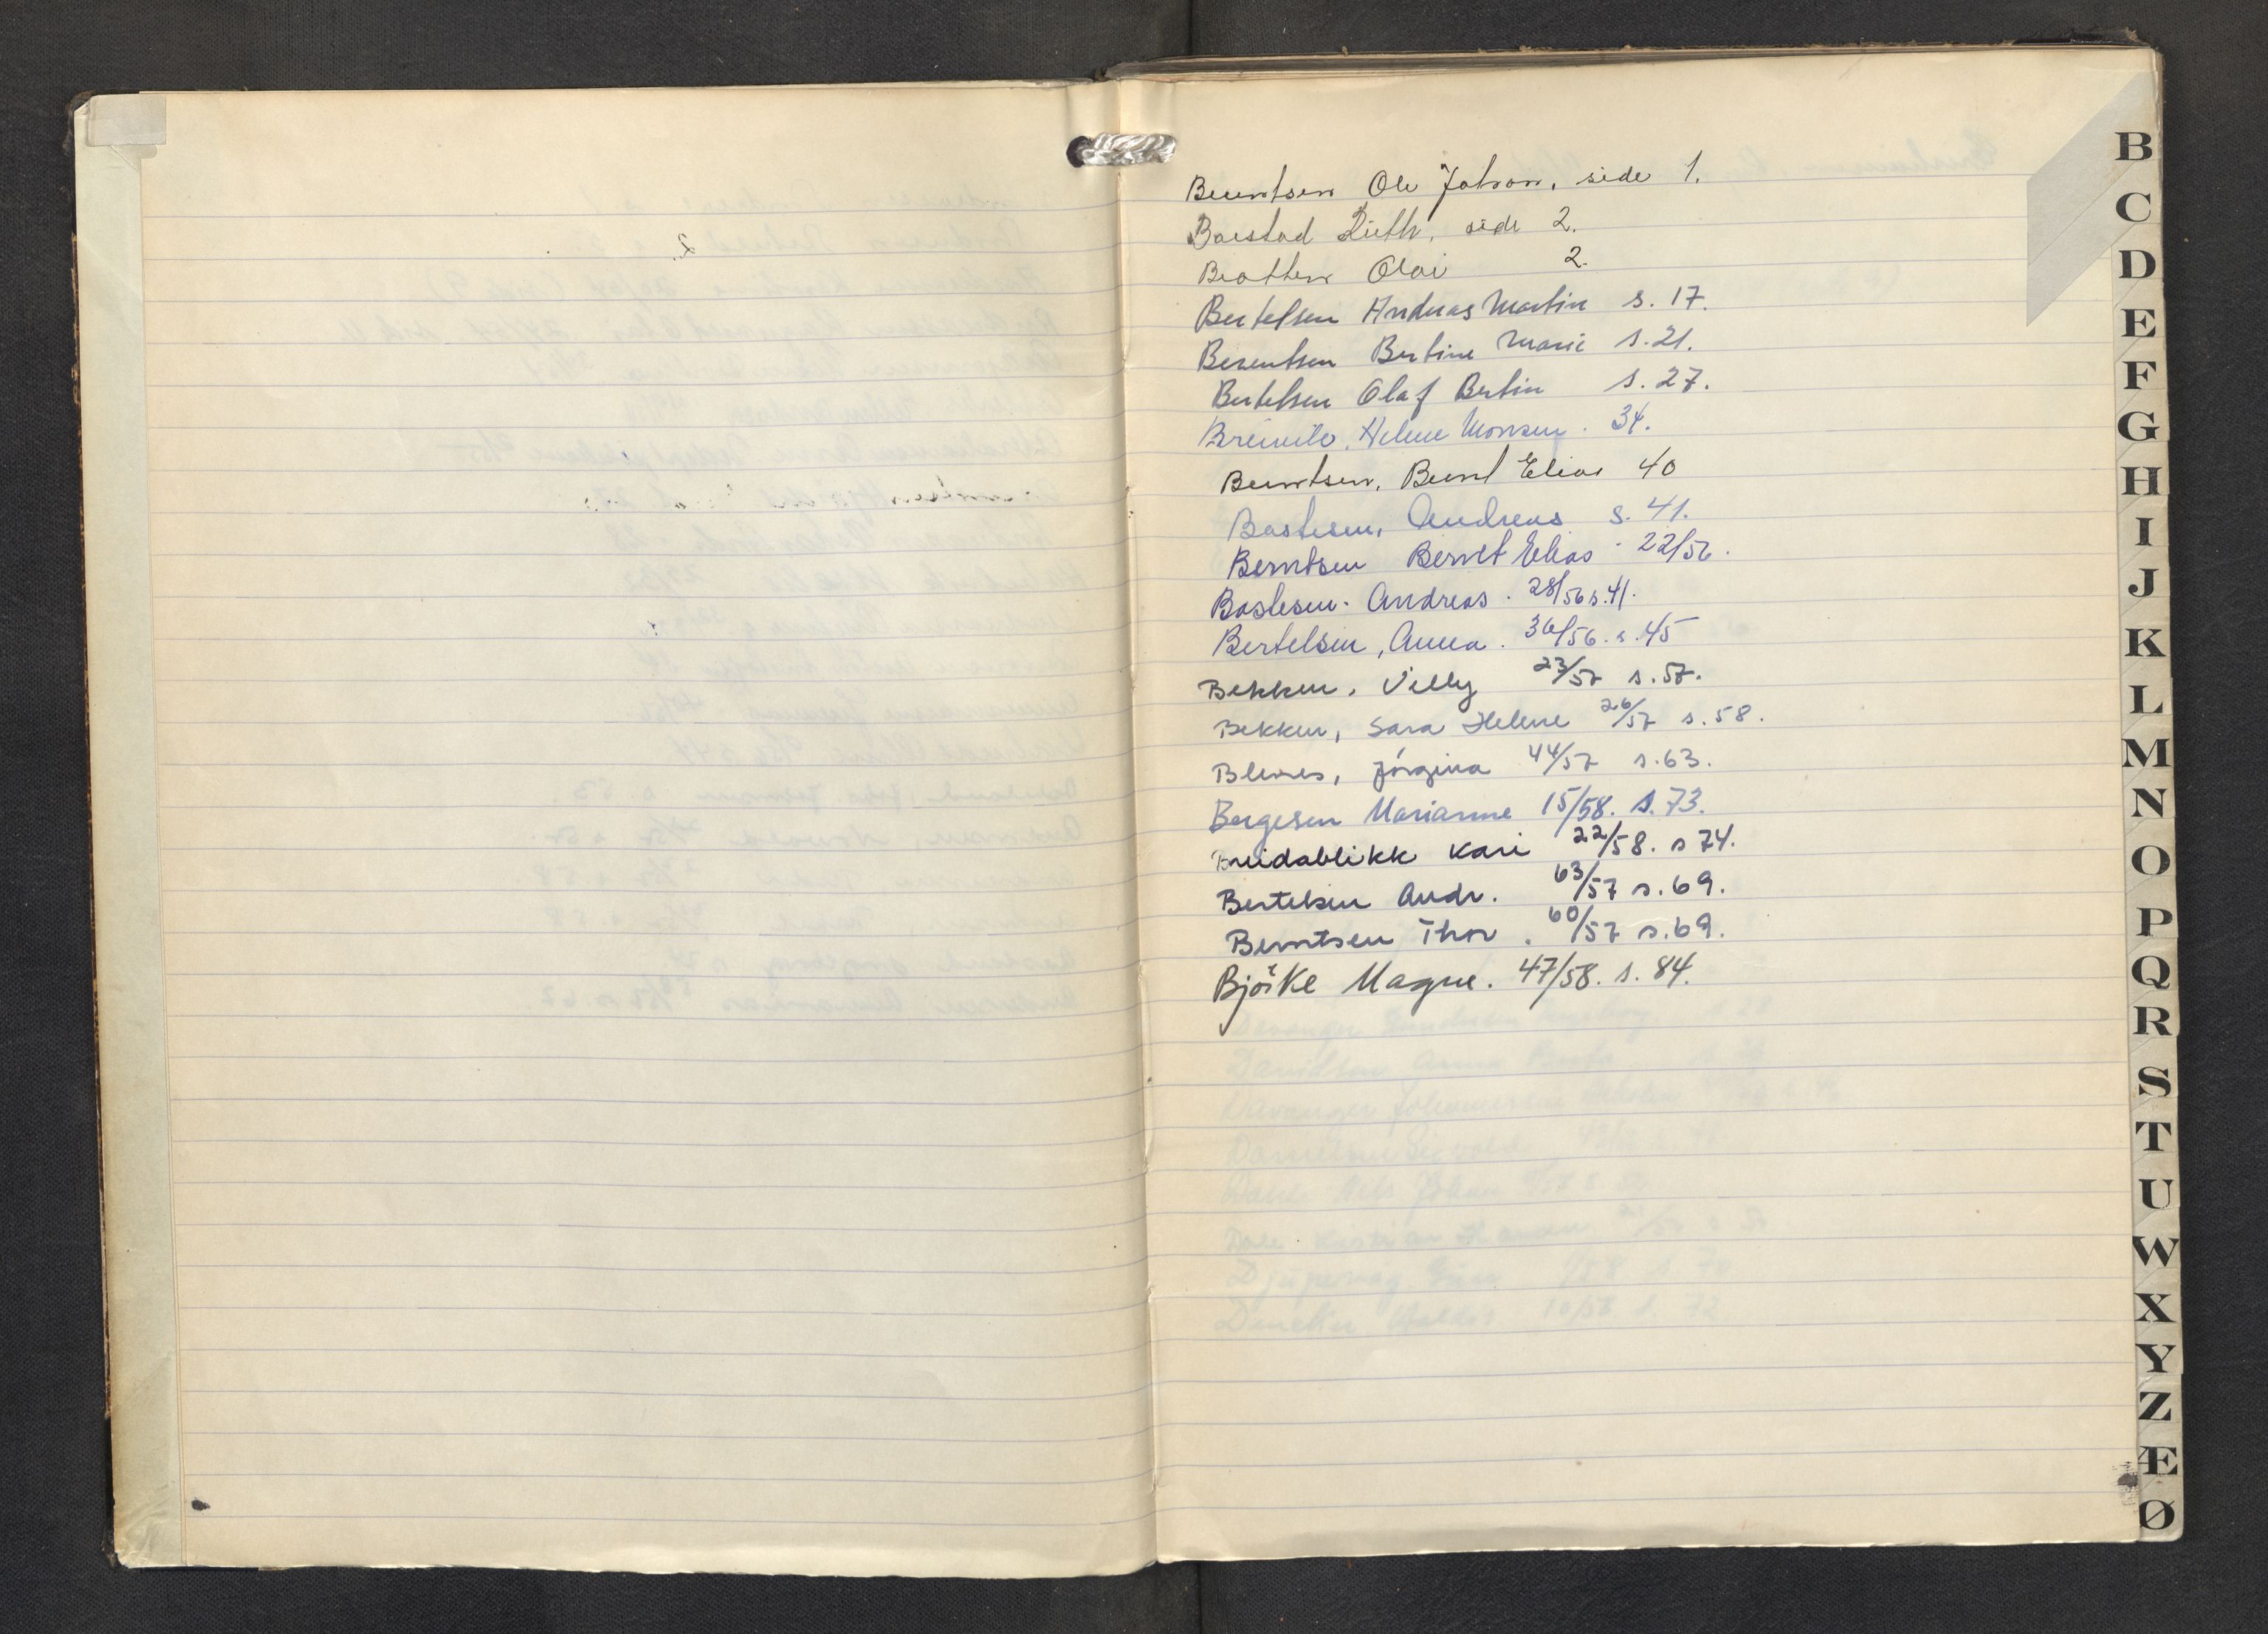 Berntsen Ole Johan, side 1.
Barstad Ruth, side 2.
Bratten Olai 2.
Bertelsen Andreas Martin s. 17.
Berentsen Bertine Marie s. 21.
Bertelsen Olaf Bertin s. 27.
Helene Monsen. 34.
Berntsen, Bernt Elias 40
Bastesen, Andreas s. 41.
Berntsen Bernt Elias. 22/56.
Bastesen. Andreas. 28/56 s. 41.
Bertelsen, Anna. 36/56. s. 45
Bekken, Villy 23/57 s. 57.
Bekken, Sara Helene 26/57 s. 58.
Blenes, Jørgina 44/57 s. 63.
Børgesen Marianne 15/58. s. 73.
Breidablikk Kari 22/58. s 74.
Bertelsen Andr. 63/57 s. 69.
Berntsen Thor. 60/57 s. 69.
Bjørke Magne. 47/58. s. 84.
B
C
D
E
F
G
H
I
J
K
L
M
N
O
P
Q
R
S
T
U
W
X
Y
Z
Æ
Ø